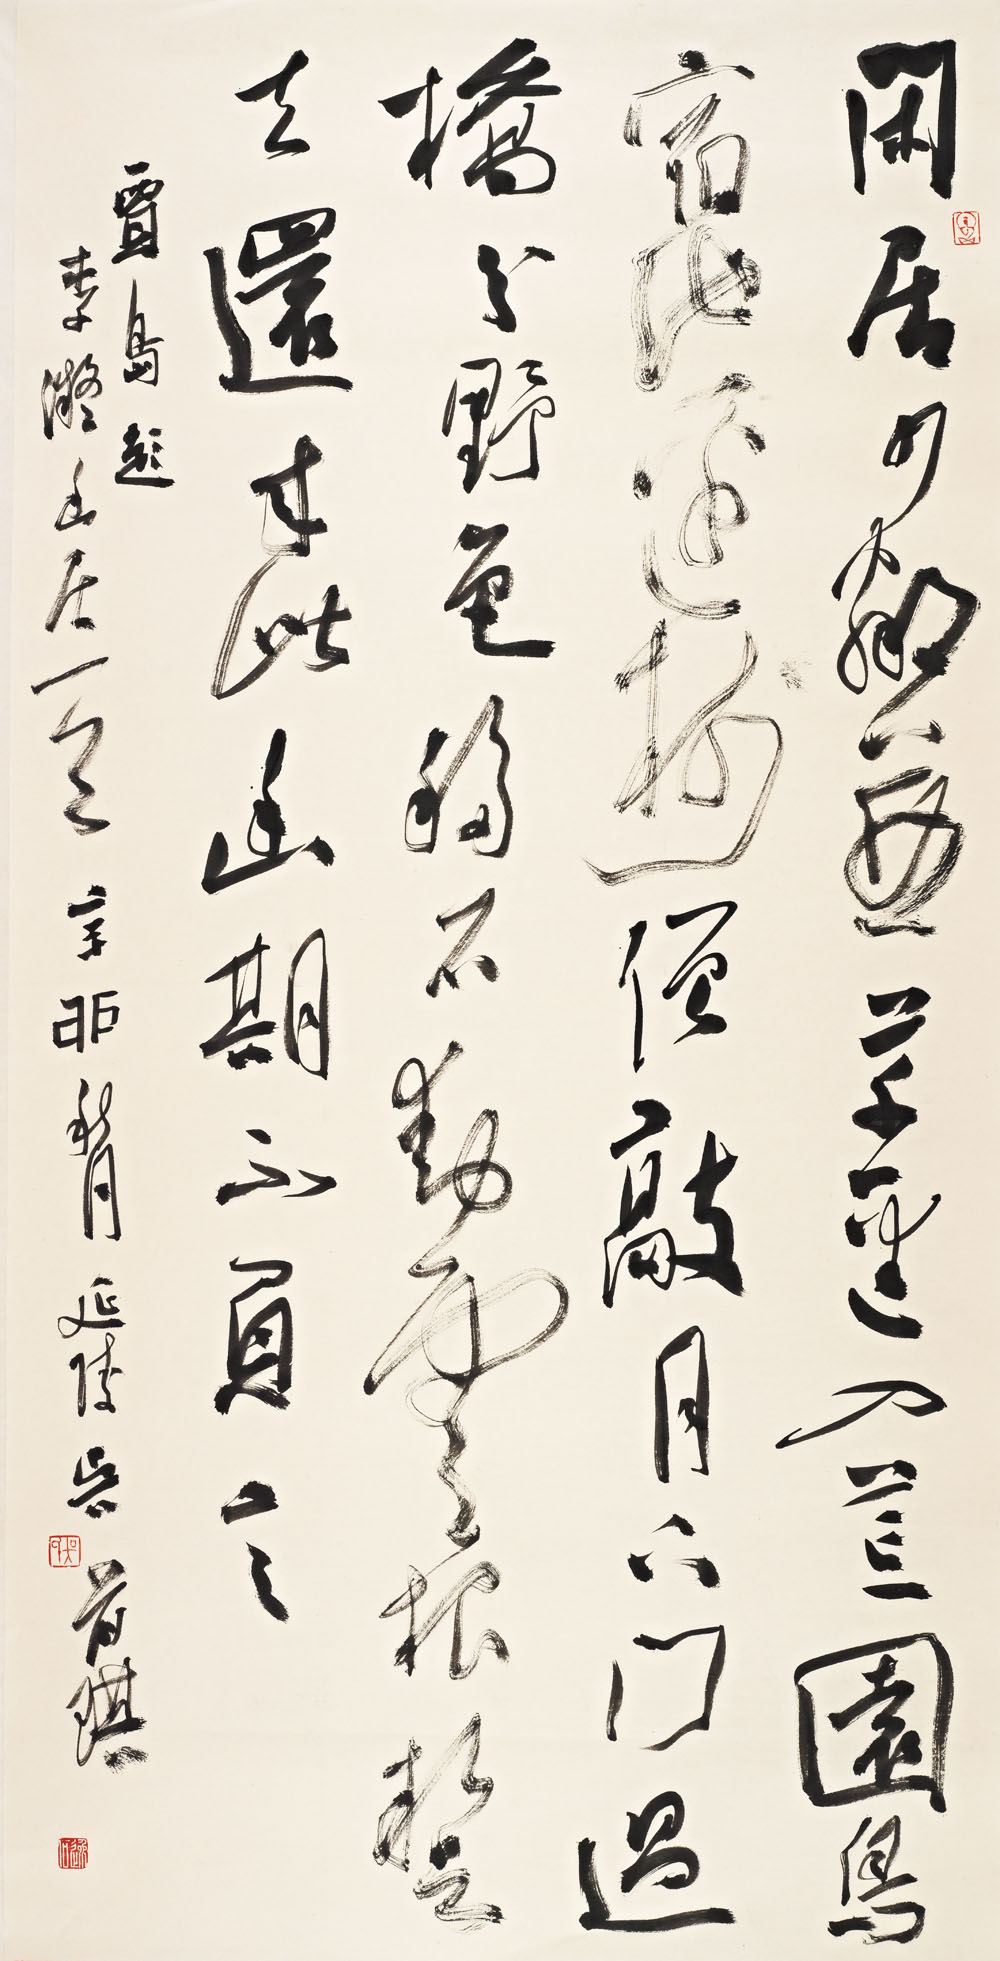 閑居少鄰並草徑入荒園鳥
宿池邊樹僧敲月下門過
橋分野色移石動雲根暫
去還來此幽期不負言
賈島題
李凝幽居一首 辛卯秋月 延陵吳琪